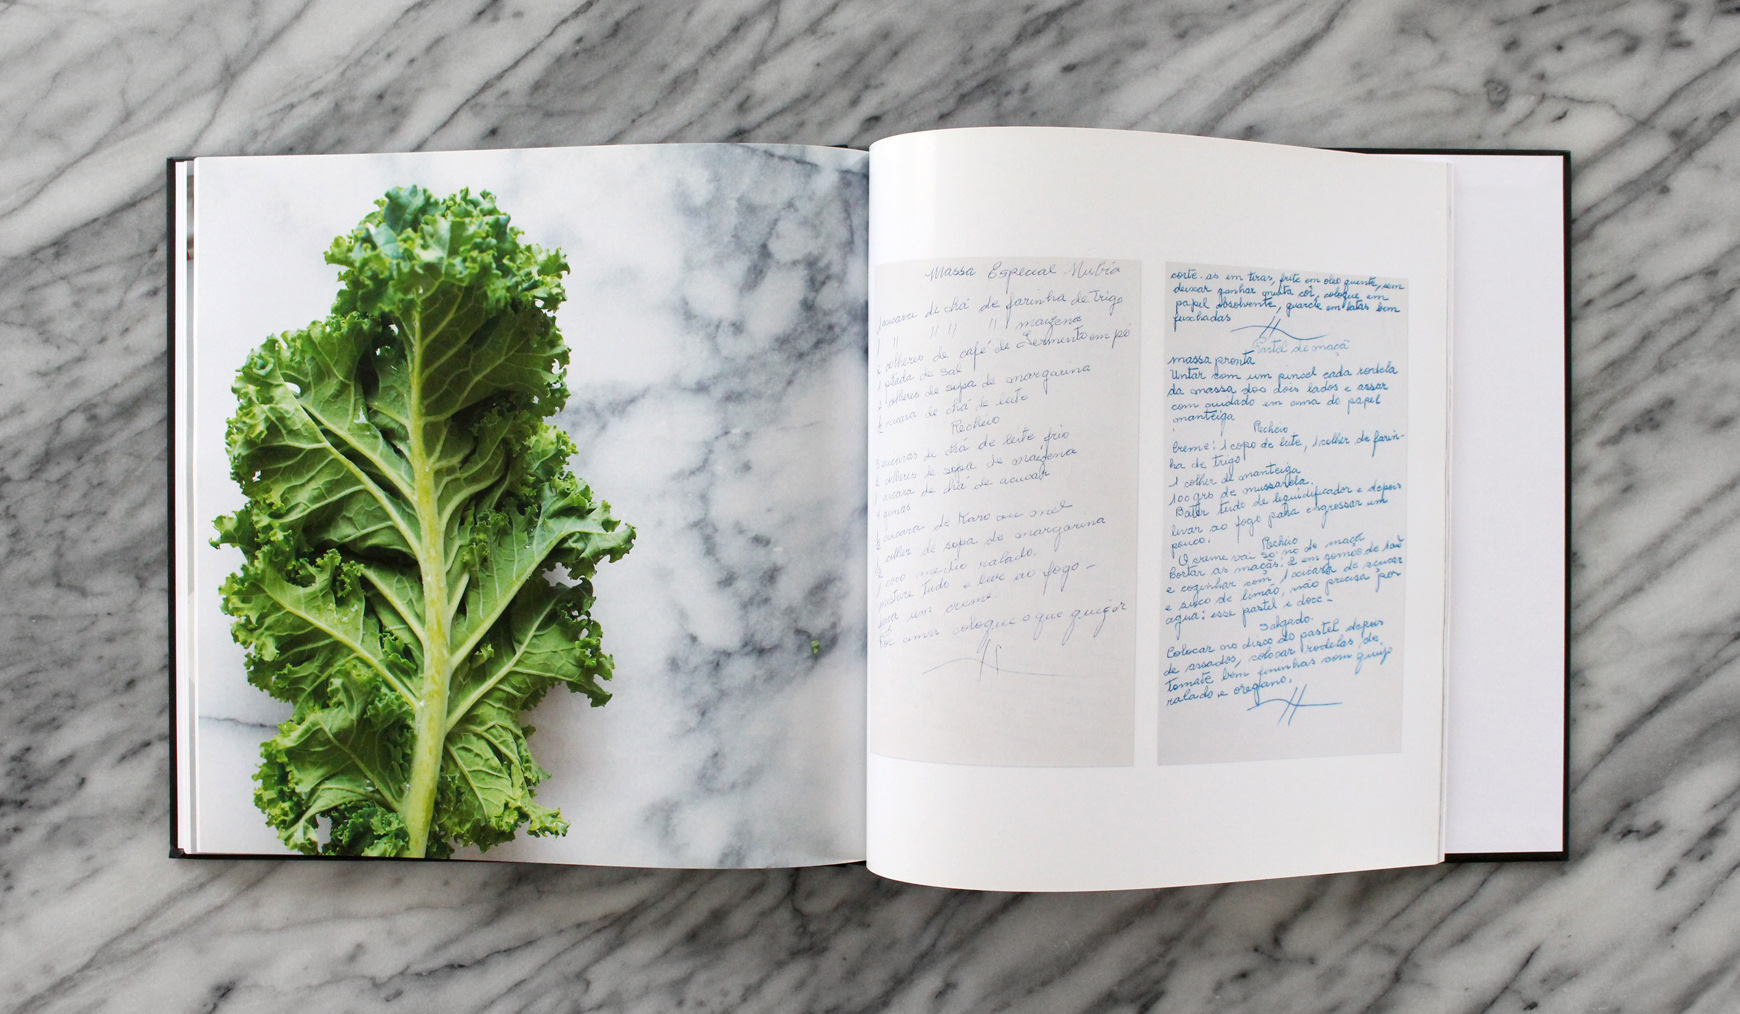 Massa Especial Núbia
1 xícara de chá de farinha de trigo
1 " " " " maizena
colheres de café de Fermento em pó
1 pitada de sal
2 colheres de sopa de margarina
½ xícara de chá de leite
Recheio
3 xícaras de chá de leite frio
colheres de sopa de maizena
1 xícara de chá de acucar
4 gemas
½ xicara de Karo ou mel
½ colher de sopa de margarina
1 coco medio ralado.
misture tudo e leve ao fogo-
um creme.
Por cima coloque o que quizer
corte-as em tiras, frite em oleo quente, sem
deixar ganhar muita côr, coloque em
papel absolvente, guarde em latas bem
fexchadas
Pastel de maçã
massa pronta
Untar com um pincel cada rodela
da massa dos dois lados e assar
com cuidado em cima do papel
manteiga
Recheio
Creme: 1 copo de leite, 1 colher de farin-
ha de trigo
1 colher de manteiga
100 grs de mussarela.
Bater tudo de liquidificador e depois
levar ao fogo paha engrossar um
pouco.
Recheio
O creme vai só no de maçã
Cortar as maçãs: 2 em gomos de
e cozinhar com, 1 xicara de açucar
e suco de limão, não precisa por
agua: esse pastel e doce-
Salgado.
Colocar no disco do pastel depois
de assados, colocar rodelas, de
tomate bem fininhas com queijo
ralado e oregano.